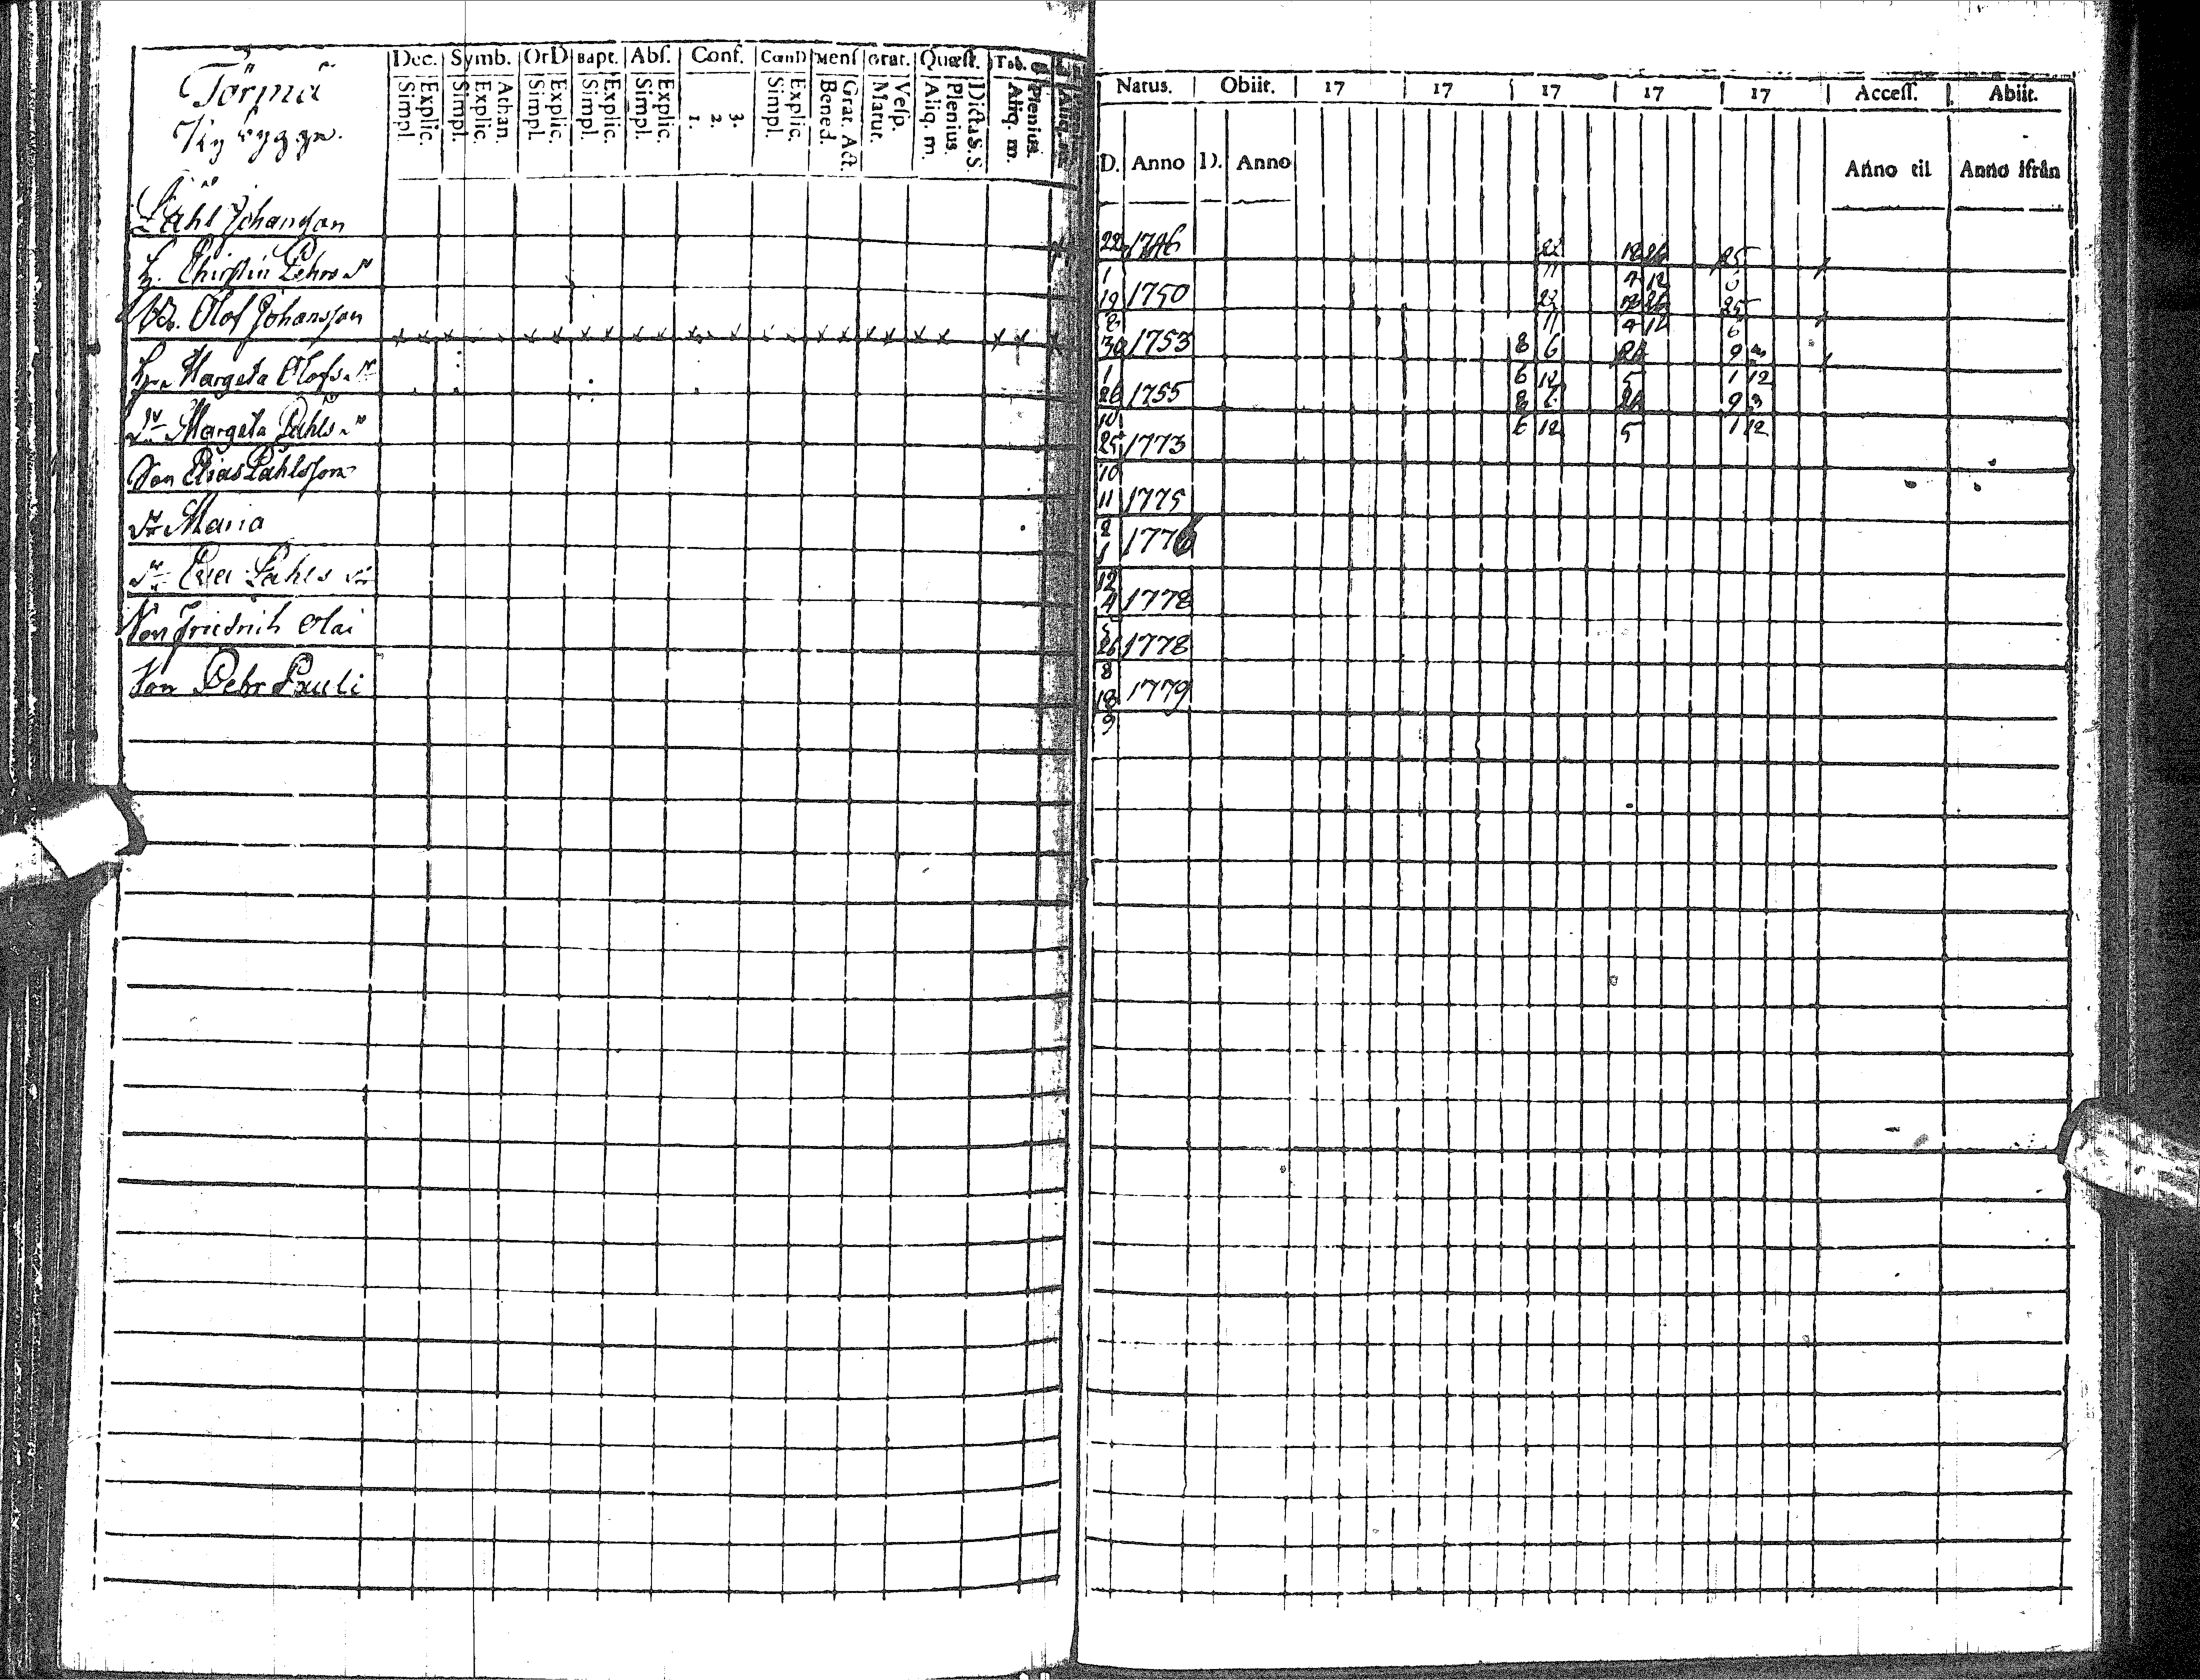 Törmä
Nybygge.
Dec. Symb. OrD Bapt. Abs. Conf. CœnD Mens Grat. Quæst. Tab.
Simpl. Explic. Simpl. Explic. Athan. Simpl. Explic. Simpl. Explic. Simpl. Explic. 1. 2. 3. Simpl. Explic. Bened. Grat. Act. Matut. Vesp. Aliq. m. Plenius. Dicta S. S Aliq. m. Plenius.
Natus. Obiit. 17 17 17 17 17 Access. Abiit.
D. Anno D. Anno Anno til Anno ifrån
Påhl Johansson 22 1746 22 18 26 25
1 11 4 12 6
h. Chirstin Pehrs dr 19 1750 22 18 26 25
11 4 12 6
Br. Olof Johansson 30 1753 8 6 24 9
1 6 12 5 1 12
h. Margeta Olofs dr 26 1755 8 6 24 9
10 6 12 5 1 12
dr Margeta Påhls dr 25 1773
10
Son Elias Påhlsson 11 1775
2
dr Maria 1 1776
12
dr Eva Påhls dr 4 1778
5
Son Friedrich Olai 26 1778
8
Son Pehr Pauli 18 1779
9